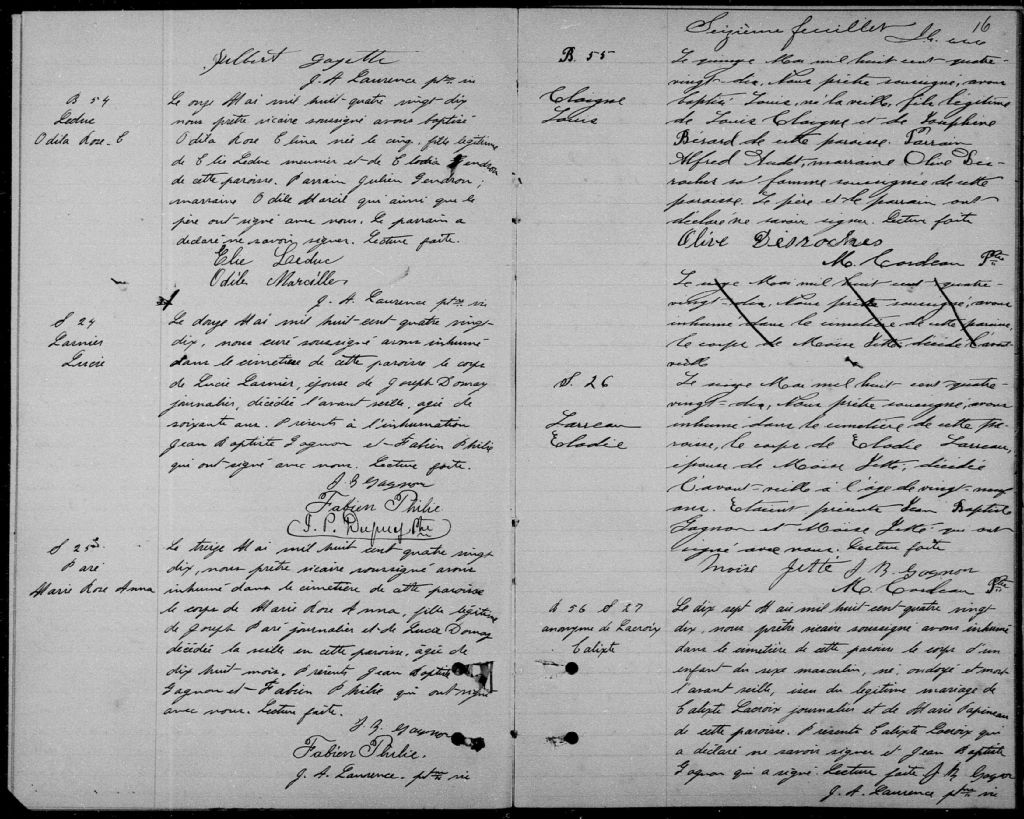 Julbert Goyette
J. A. Laurence ptre vic
B 54
Leduc
Odila Rose E
Le onze Mai mil huit-quatre vingt dix
nous prêtre vicaire soussigné avons baptisé
Odila Rose Elina née le cinq, fille légitime
de Elie Leduc meunier et de Elodia Gendron
de cette paroisse. Parrain Julien Gendron;
marraine Odile Marcil qui ainsi que le
père ont signé avec nous. Le parrain a
déclaré ne savoir signer. Lecture faite.
Elie Leduc
Odile Marcille
J. A. Laurence ptre vic
S 24
Larnier
Lucie
Le douze Mai mil huit-cent quatre vingt-
dix, nous curé soussigné avons inhumé
dans le cimetière de cette paroisse le corps
de Lucie Larnier, épouse de Joseph Douray
journalier, décédée l'avant veille, agée de
soixante ans. Présents à l'inhumation
Jean Baptiste Gagnon et Fabien Philie
qui ont signé avec nous. Lecture faite.
J B Gagnon
Fabien Philie
J. P. Dupuy Ptre
S 25
Paré
Marie Rose Anna
Le treize Mai mil huit cent quatre vingt
dix, nous prêtre vicaire soussigné avons
inhumé dans le cimetière de cette paroisse
le corps de Marie Rose Anna, fille légitime
de Joseph Paré journalier et de Lucie Douray
décédée la veille en cette paroisse, âgée de
dix huit mois. Présents Jean Baptiste
Gagnon et Fabien Philie qui ont signé
avec nous. Lecture faite.
J. B. Gagnon
Fabien Philie.
J. A. Laurence. ptre vic
Seizième feuillet 16
B. 55
Claigne
Louis
Le quinze Mai mil huit cent quatre-
vingt-dix, Nous prêtre soussigné, avons
baptisé Louis, né la veille, fils légitime
de Louis Claigne et de Joséphine
Bérard de cette paroisse. Parrain
Alfred Audet, marraine Olive Des-
rochers sa femme soussignée de cette
paroisse. Le père et le parrain ont
déclaré ne savoir signer. Lecture faite
Olive Desrochers
M. Cordeau Ptre
Le seize Mai mil huit cent quatre-
vingt-dix, Nous prêtre soussigné, avons
inhumé dans le cimetière de cette paroisse,
le corps de Moise Jetté, décédé l'avant
veille
S. 26
Larreau
Elodie
Le seize Mai mil huit cent quatre-
vingt-dix, Nous prêtre soussigné, avons
inhumé dans le cimetière de cette pa-
roisse, le corps de Elodie Larreau,
épouse de Moise Jetté, décédée
l'avant-veille à l'âge de vingt-neuf
ans. Etaient présents Jean Baptiste
Gagnon et Moise Jetté qui ont
signé avec nous. Lecture faite
Moise Jetté J B. Gagnon
M. Cordeau Ptre
B 56 S 27
anonyme de Lacroix
Calixte
Le dix sept Mai mil huit cent quatre vingt
dix, nous prêtre vicaire soussigné avons inhumé
dans le cimetière de cette paroisse le corps d'un
enfant du sexe masculin, né, ondoyé et mort
l'avant veille, issu du légitime mariage de
Calixte Lacroix journalier et de Marie Papineau
de cette paroisse. Présents Calixte Lacroix qui
a déclaré ne savoir signer et Jean Baptiste
Gagnon qui a signé. Lecture faite J B Gagnon
J. A. Laurence ptre vic